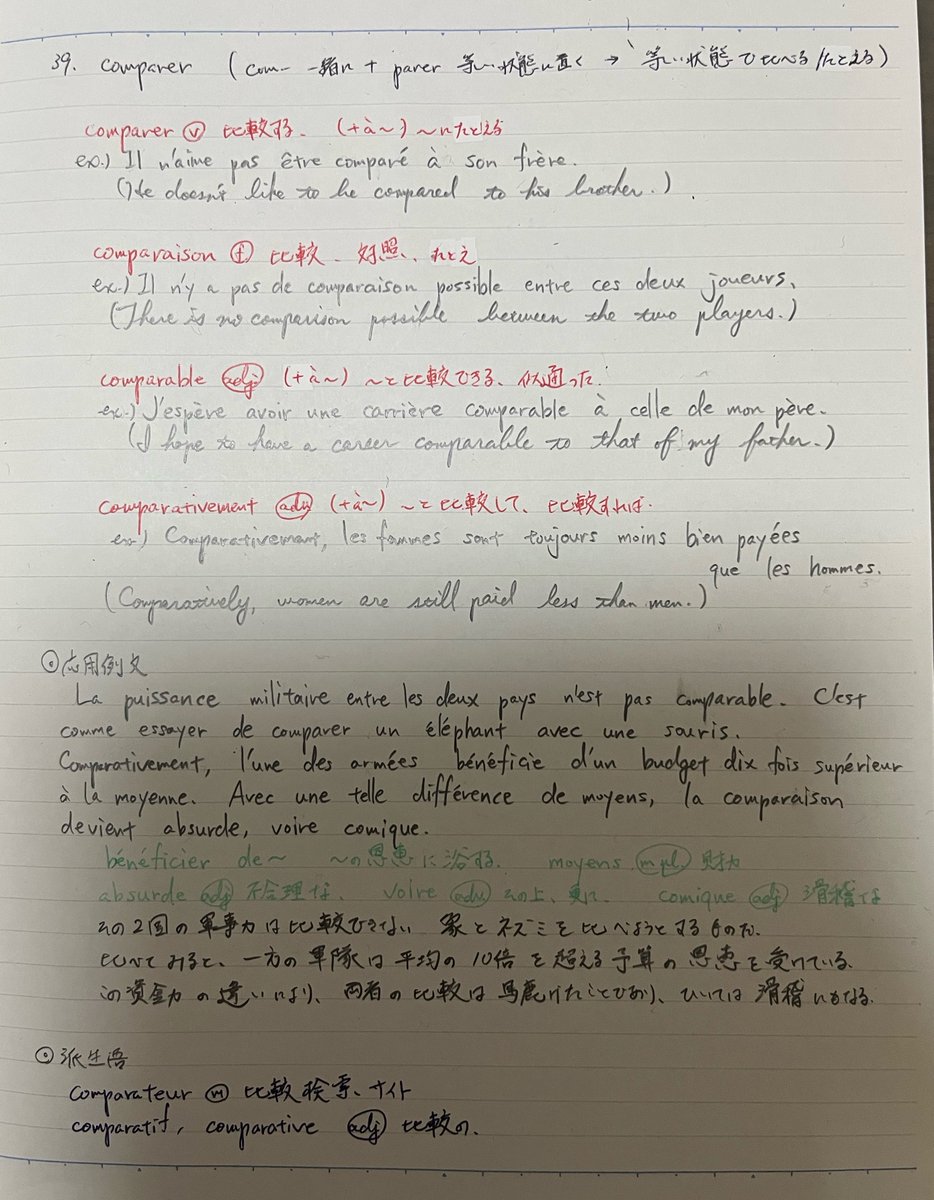 39. comparer (com- 一緒に + parer 等しい状態に置く → 等しい状態で比べる/たとえる)
comparer ⓥ 比較する、(+à~) ~にたとえる
ex.) Il n'aime pas être comparé à son frère.
(He doesn't like to be compared to his brother.)
comparaison ⓕ 比較、対照、たとえ
ex.) Il n'y a pas de comparaison possible entre ces deux joueurs.
(There is no comparison possible between the two players.)
comparable adj (+à~) ~と比較できる、似通った.
ex.) J'espère avoir une carrière comparable à celle de mon père.
(I hope to have a career comparable to that of my father.)
comparativement adv (+à~) ~と比較して、比較すれば.
ex.) Comparativement, les femmes sont toujours moins bien payées
que les hommes.
(Comparatively, women are still paid less than men.)
⊙応用例文
La puissance militaire entre les deux pays n'est pas comparable. C'est
comme essayer de comparer un éléphant avec une souris.
Comparativement, l'une des armées bénéficie d'un budget dix fois supérieur
à la moyenne. Avec une telle différence de moyens, la comparaison
devient absurde, voire comique.
bénéficier de~ ~の恩恵に浴する. moyens m.pl 財力
absurde adj 不合理な、 voire adv その上、更に comique adj 滑稽な
その2国の軍事力は比較できない 象とネズミを比べようとするものだ.
比べてみると、一方の軍隊は平均の10倍を超える予算の恩恵を受けている.
この資金力の違いにより、両者の比較は馬鹿げたことであり、ひいては滑稽にもなる.
⊙派生語
comparateur ⓜ 比較検索サイト
comparatif, comparative adj 比較の.